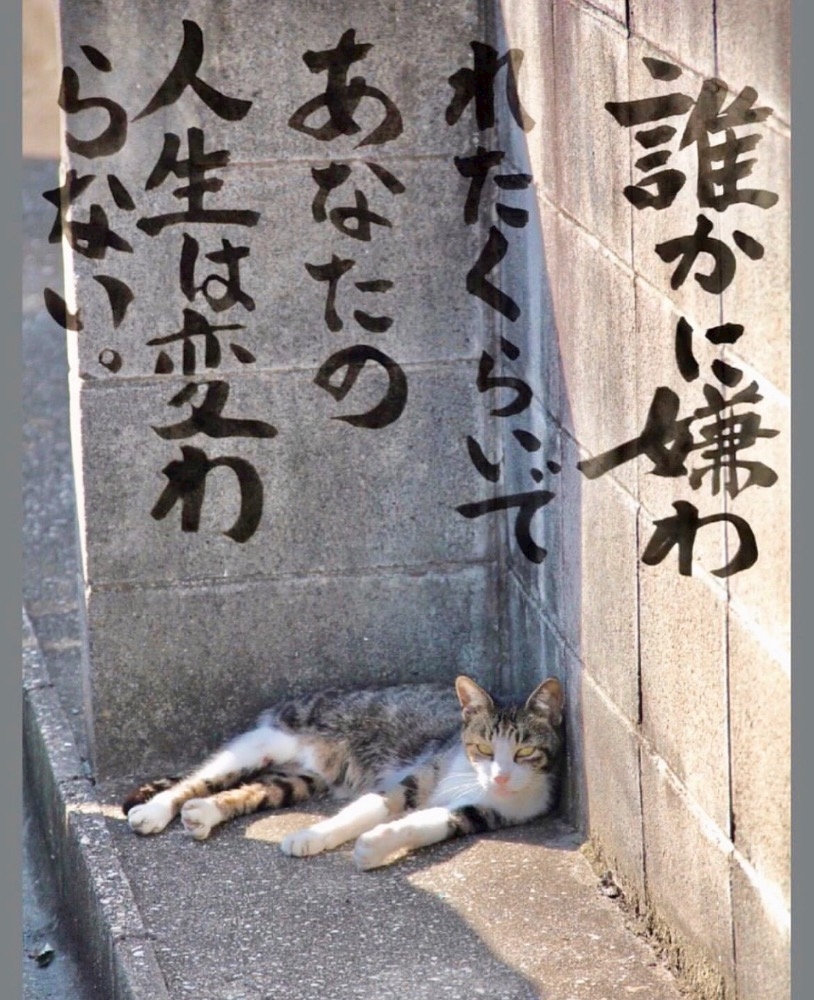 誰かに嫌わ
れたくらいで
あなたの
人生は変わ
らない。